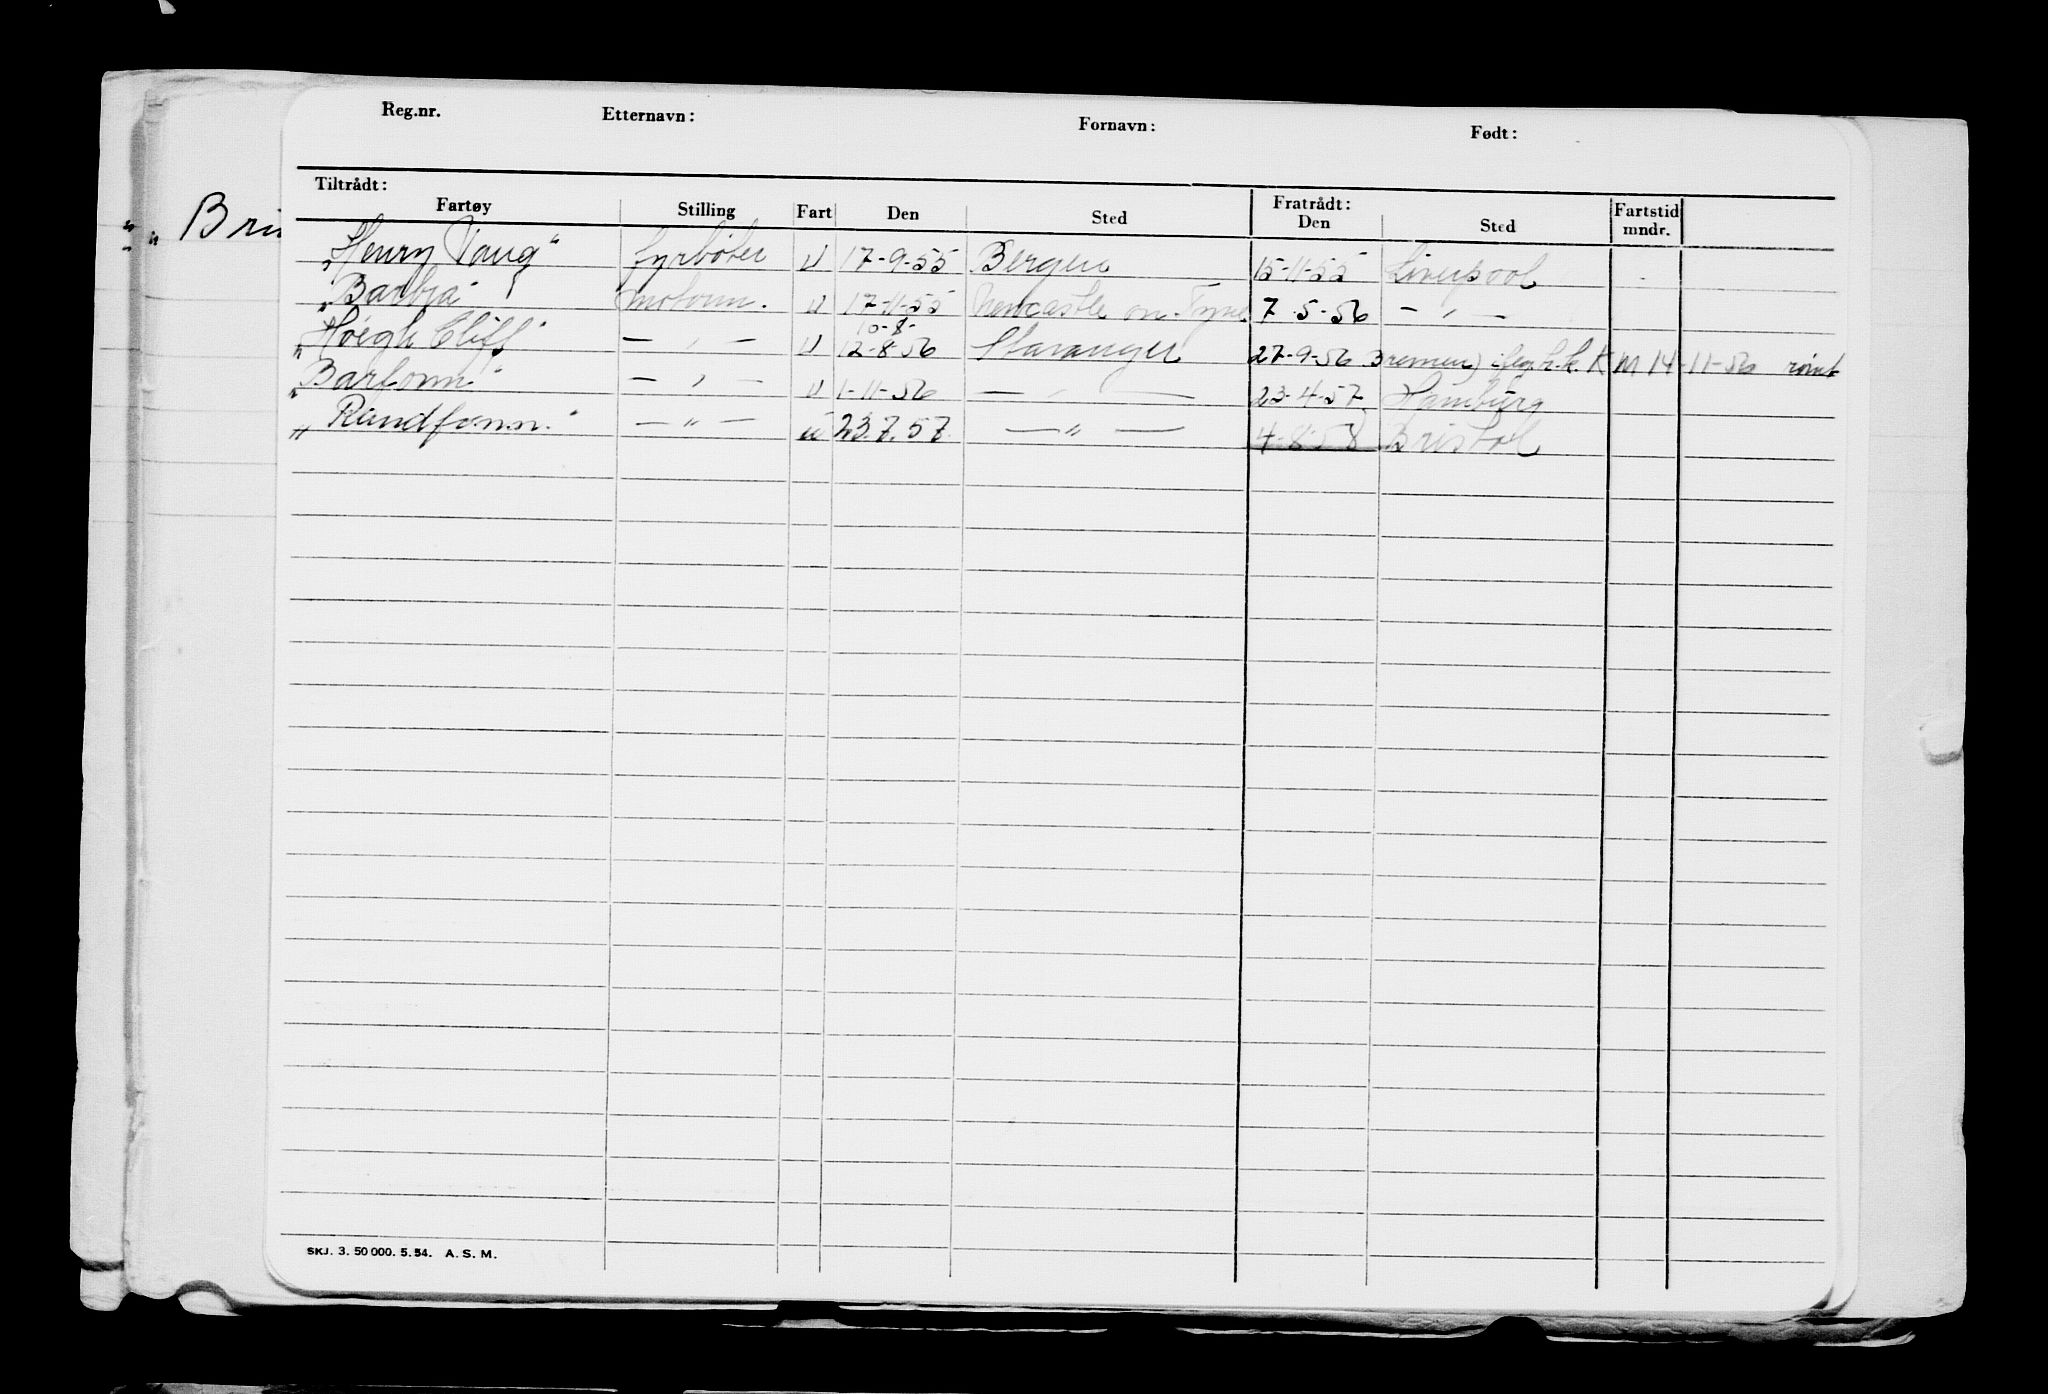 Reg.nr. Etternavn: Fornavn: Født:
Tiltrådt: Fratrådt:
Fartøy Stilling Fart Den Sted Den Sted Fartstid mndr.
„ Bri
„Henry Taug" fyrbøter U 17-9-55 Bergen 15-11-55 Liverpool
„Barbra" motorm. U 17-11-55 Newcastle on Tyne 7-5-56 — „ —
10-8-
„Høegh Cliff" — „ — U 12-8-56 Stavanger 27-9-56 Bremen) iflg. h.k. K M 14-11-56 rømt
„Barfonn" — „ — U 1-11-56 — „ — 23-4-57 Hamburg
„Randfonn." — „ — u 23.7.57. — „ — 4-8-58 Bristol
SKJ. 3. 50 000. 5. 54. A. S. M.